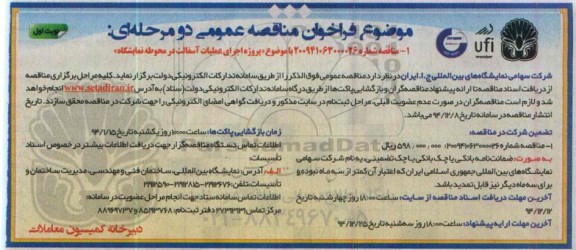 موضوع فراخوان مناقصه عمومی دو مرحله‌ای:
نوبت اول
۱- مناقصه شماره ۲۰۰۹۴۱۰۶۳۰۰۰۰۲۶ با موضوع «پروژه اجرای عملیات آسفالت در محوطه نمایشگاه»
ufi
شرکت سهامی نمایشگاه‌های بین‌المللی ج.ا.ایران در نظر دارد مناقصه عمومی فوق الذکر را از طریق سامانه تدارکات الکترونیکی دولت برگزار نماید. کلیه مراحل برگزاری مناقصه
از دریافت اسناد مناقصه تا ارائه پیشنهاد مناقصه‌گران و بازگشایی پاکت‌ها از طریق درگاه سامانه تدارکات الکترونیکی دولت (ستاد) به آدرس www.setadiran.ir انجام خواهد
شد و لازم است مناقصه‌گران در صورت عدم عضویت قبلی، مراحل ثبت‌نام در سایت مذکور و دریافت گواهی امضای الکترونیکی را جهت شرکت در مناقصه محقق سازند. تاریخ
انتشار مناقصه در سامانه تاریخ ۹۴/۱۲/۸ می‌باشد.
تضمین شرکت در مناقصه:
۱- مناقصه شماره ۲۰۰۹۴۱۰۶۳۰۰۰۰۲۶: ۵۹۸/۰۰۰/۰۰۰ ریال
به صورت: ضمانت‌نامه بانکی یا چک بانکی یا چک تضمینی، به نام شرکت سهامی
نمایشگاه‌های بین‌المللی جمهوری اسلامی ایران که اعتبار آن کمتر از سه ماه نبوده و
برای سه ماه دیگر نیز قابل تمدید باشد.
آخرین مهلت دریافت اسناد مناقصه از سایت: ساعت ۱۸:۰۰ روز چهارشنبه تاریخ
۹۴/۱۲/۱۲
آخرین مهلت ارایه پیشنهاد: ساعت ۱۸:۰۰ روز سه‌شنبه تاریخ
زمان بازگشایی پاکت‌ها: ساعت ۱۰:۰۰ روز یکشنبه تاریخ ۹۴/۱/۱۵
اطلاعات تماس دستگاه مناقصه‌گزار جهت دریافت اطلاعات بیشتر در خصوص اسناد
تأسیسات:
الف: آدرس: نمایشگاه بین‌المللی، ساختمان فنی و مهندسی، مدیریت ساختمان و
تأسیسات، تلفن:
اطلاعات تماس سامانه ستاد جهت انجام مراحل عضویت در سامانه:
مرکز تماس: دفتر ثبت‌نام: ۸۸۹۶۹۷۳۷ و
دبیرخانه کمیسیون معاملات